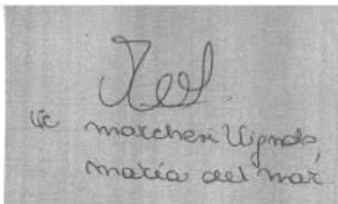 Lic marchesi Vignolo,
maría del mar